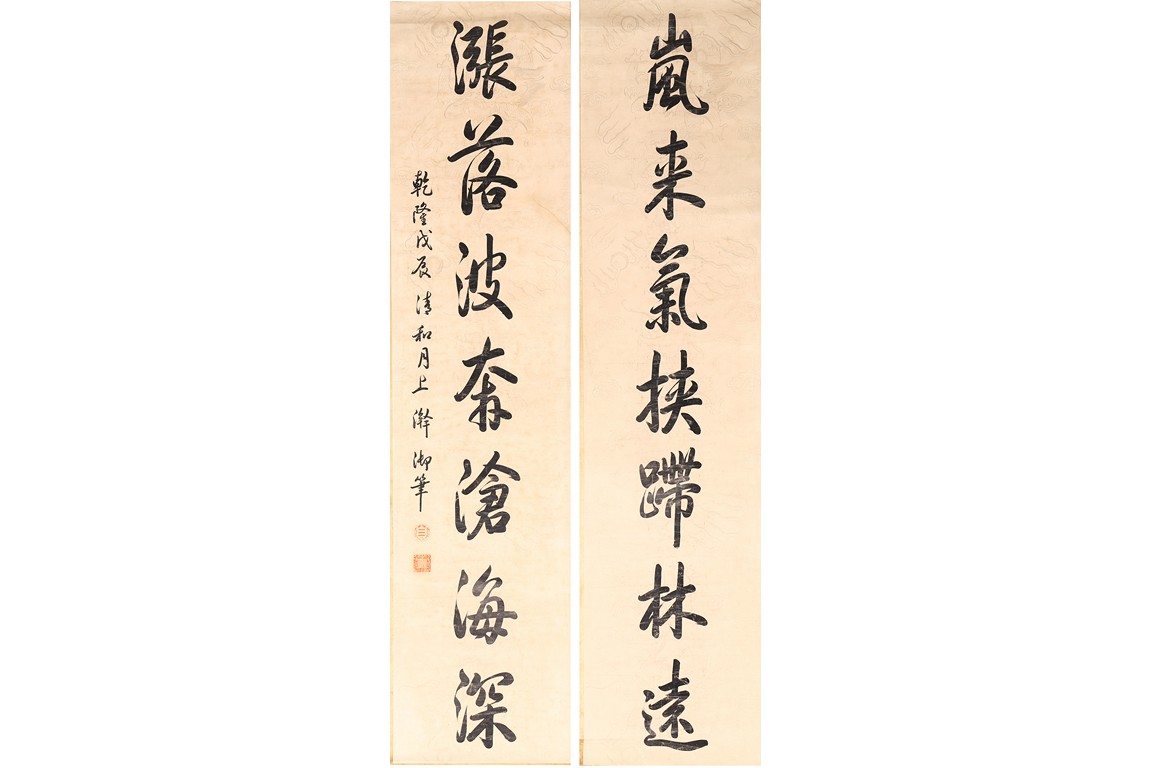 嵐来氣挾蹛林遠
漲落波奔滄海深
乾隆戊辰清和月上澣御筆